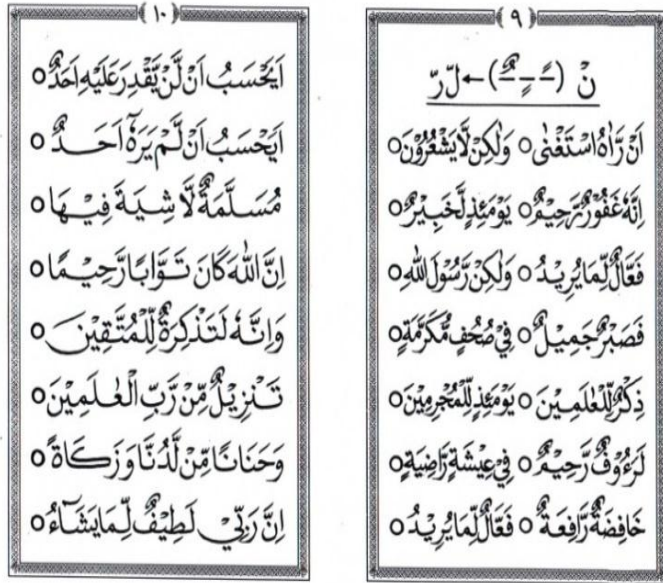 ﴿ ٩ ﴾
نْ (ـًـ ـٍـ ـٌـ) ← لّ رّ
اَنْ رَّاٰهُ اسْتَغْنٰى ○ وَلٰكِنْ لَّا يَشْعُرُوْنَ ○
اِنَّهٗ غَفُوْرٌ رَّحِيْمٌ ○ يَوْمَئِذٍ لَّخَبِيْرٌ ○
فَعَّالٌ لِّمَا يُرِيْدُ ○ وَلٰكِنْ رَّسُوْلَ اللّٰهِ ○
فَصَبْرٌ جَمِيْلٌ ○ فِيْ صُحُفٍ مُّكَرَّمَةٍ ○
ذِكْرٌ لِّلْعٰلَمِيْنَ ○ يَوْمَئِذٍ لِّلْمُجْرِمِيْنَ ○
لَرَءُوْفٌ رَّحِيْمٌ ○ فِيْ عِيْشَةٍ رَّاضِيَةٍ ○
خَافِضَةٌ رَّافِعَةٌ ○ فَعَّالٌ لِّمَا يُرِيْدُ ○
﴿ ١٠ ﴾
اَيَحْسَبُ اَنْ لَّنْ يَّقْدِرَ عَلَيْهِ اَحَدٌ ○
اَيَحْسَبُ اَنْ لَّمْ يَرَهٗٓ اَحَدٌ ○
مُسَلَّمَةٌ لَّا شِيَةَ فِيْهَا ○
اِنَّ اللّٰهَ كَانَ تَوَّابًا رَّحِيْمًا ○
وَاِنَّهٗ لَتَذْكِرَةٌ لِّلْمُتَّقِيْنَ ○
تَنْزِيْلٌ مِّنْ رَّبِّ الْعٰلَمِيْنَ ○
وَحَنَانًا مِّنْ لَّدُنَّا وَزَكَاةً ○
اِنَّ رَبِّيْ لَطِيْفٌ لِّمَا يَشَآءُ ○